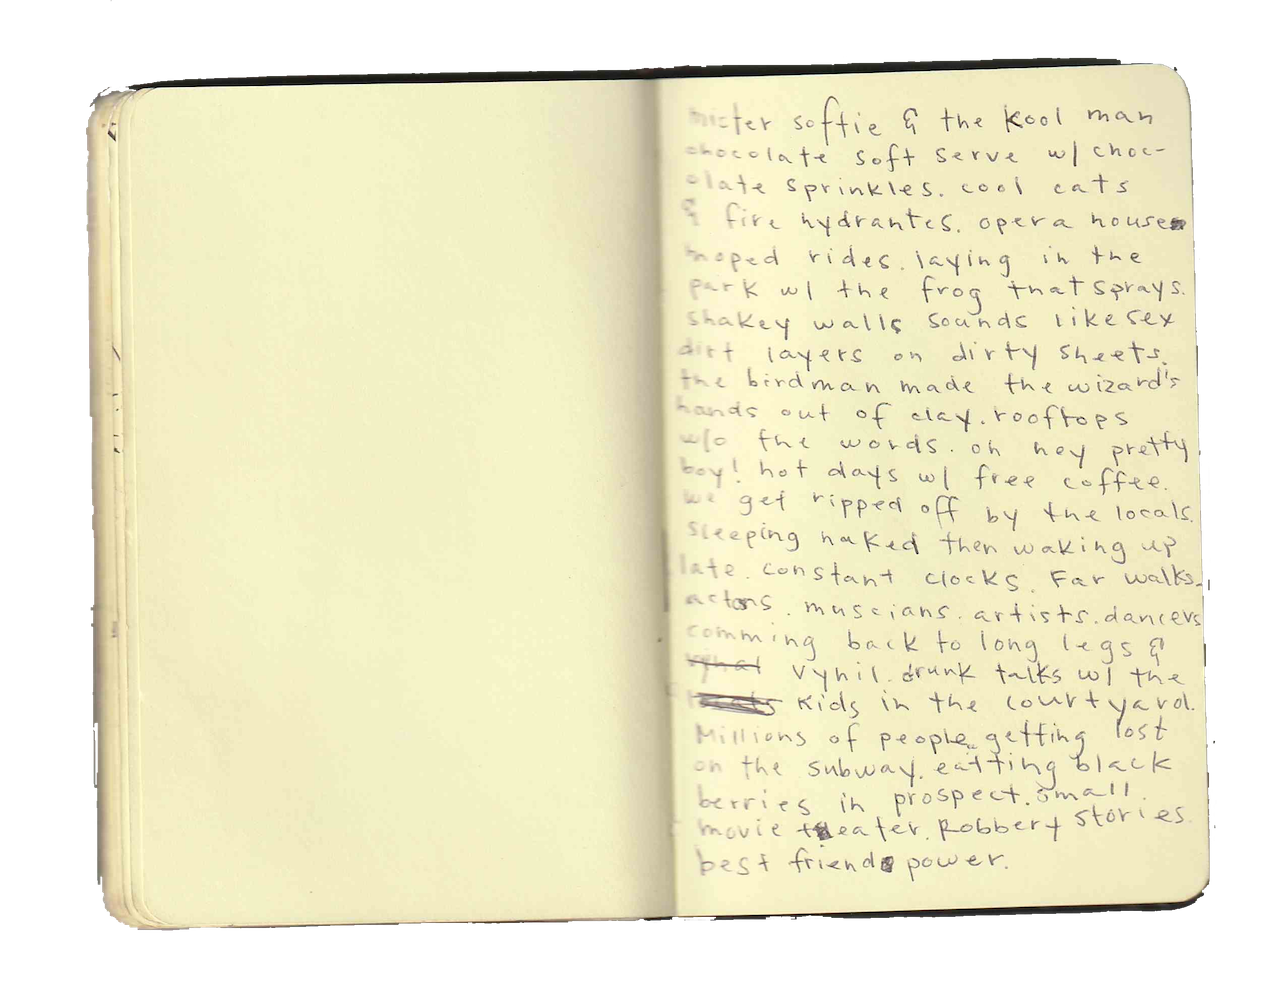 mister softie & the Kool man
chocolate soft serve w/ choc-
olate sprinkles. cool cats
& fire hydrantes. opera house
moped rides. laying in the
park w/ the frog that sprays.
shakey walls sounds like sex
dirt layers on dirty sheets.
the birdman made the wizard's
hands out of clay. rooftops
w/o the words. oh hey pretty
boy! hot days w/ free coffee.
we get ripped off by the locals.
sleeping naked then waking up
late. constant clocks. Far walks.
actors. muscians. artists. dancers
comming back to long legs &
vynil. drunk talks w/ the
kids in the courtyard.
Millions of people getting lost
on the subway. eatting black
berries in prospect. small
movie theater. Robbery stories.
best friend power.